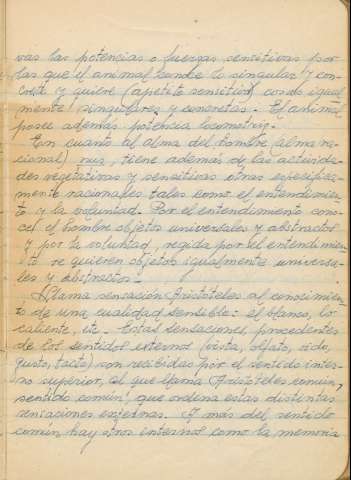 vas las potencias o fuerzas sensitivas por
las que el animal tiende lo singular y con-
creto y quiere (apetito sensitivo) cosas igual-
mente singulares y concretas. El animal
posee además potencia locomotriz.
En cuanto al alma del hombre (alma ra-
cional) nus, tiene además de las activida-
des vegetativas y sensitivas otras específica-
mente racionales tales como el entendimien-
to y la voluntad. Por el entendimiento cono-
ce el hombre objetos universales y abstractos
y por la voluntad, regida por el entendimien-
to se quieren objetos igualmente universa-
les y abstractos.
Llama sensación Aristóteles al conocimien-
to de una cualidad sensible: el blanco, lo
caliente, etc. Estas sensaciones, procedentes
de los sentidos externos (vista, olfato, oído,
gusto, tacto) son recibidas por el sentido inter-
no superior, al que llama Aristóteles común,
sentido común, que ordena estas distintas
sensaciones externas. A más del sentido
común hay otros internos como la memoria